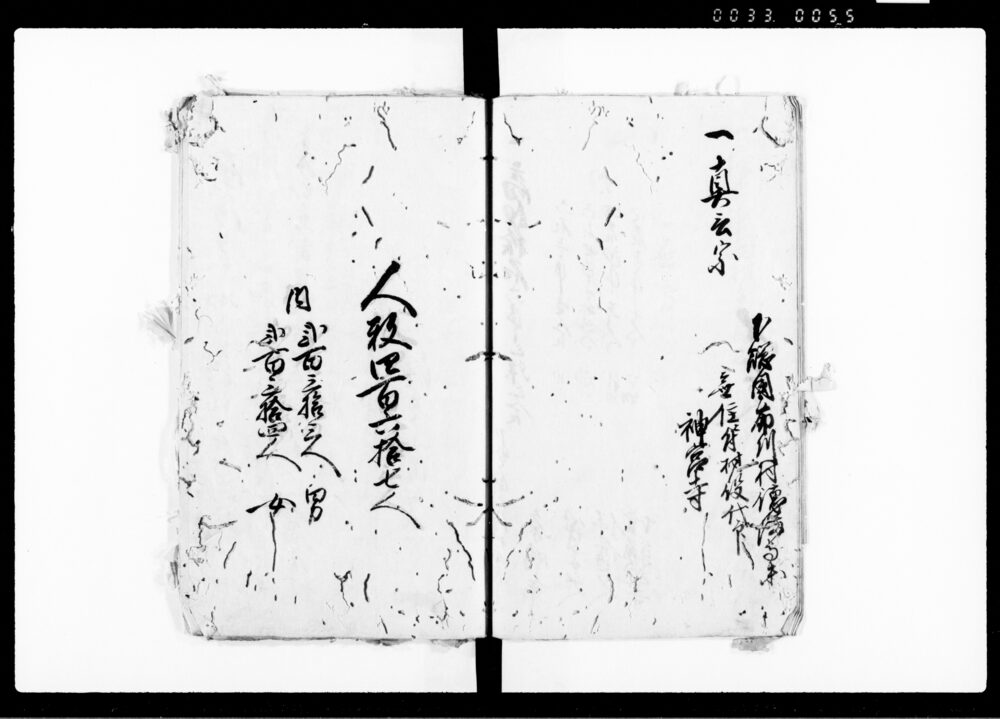 0033 0055
一 真言宗
下総国布川村徳満寺末
無住付村役代印
神宮寺
人数四百六拾七人
内 弐百三拾三人 男
弐百三拾四人 女